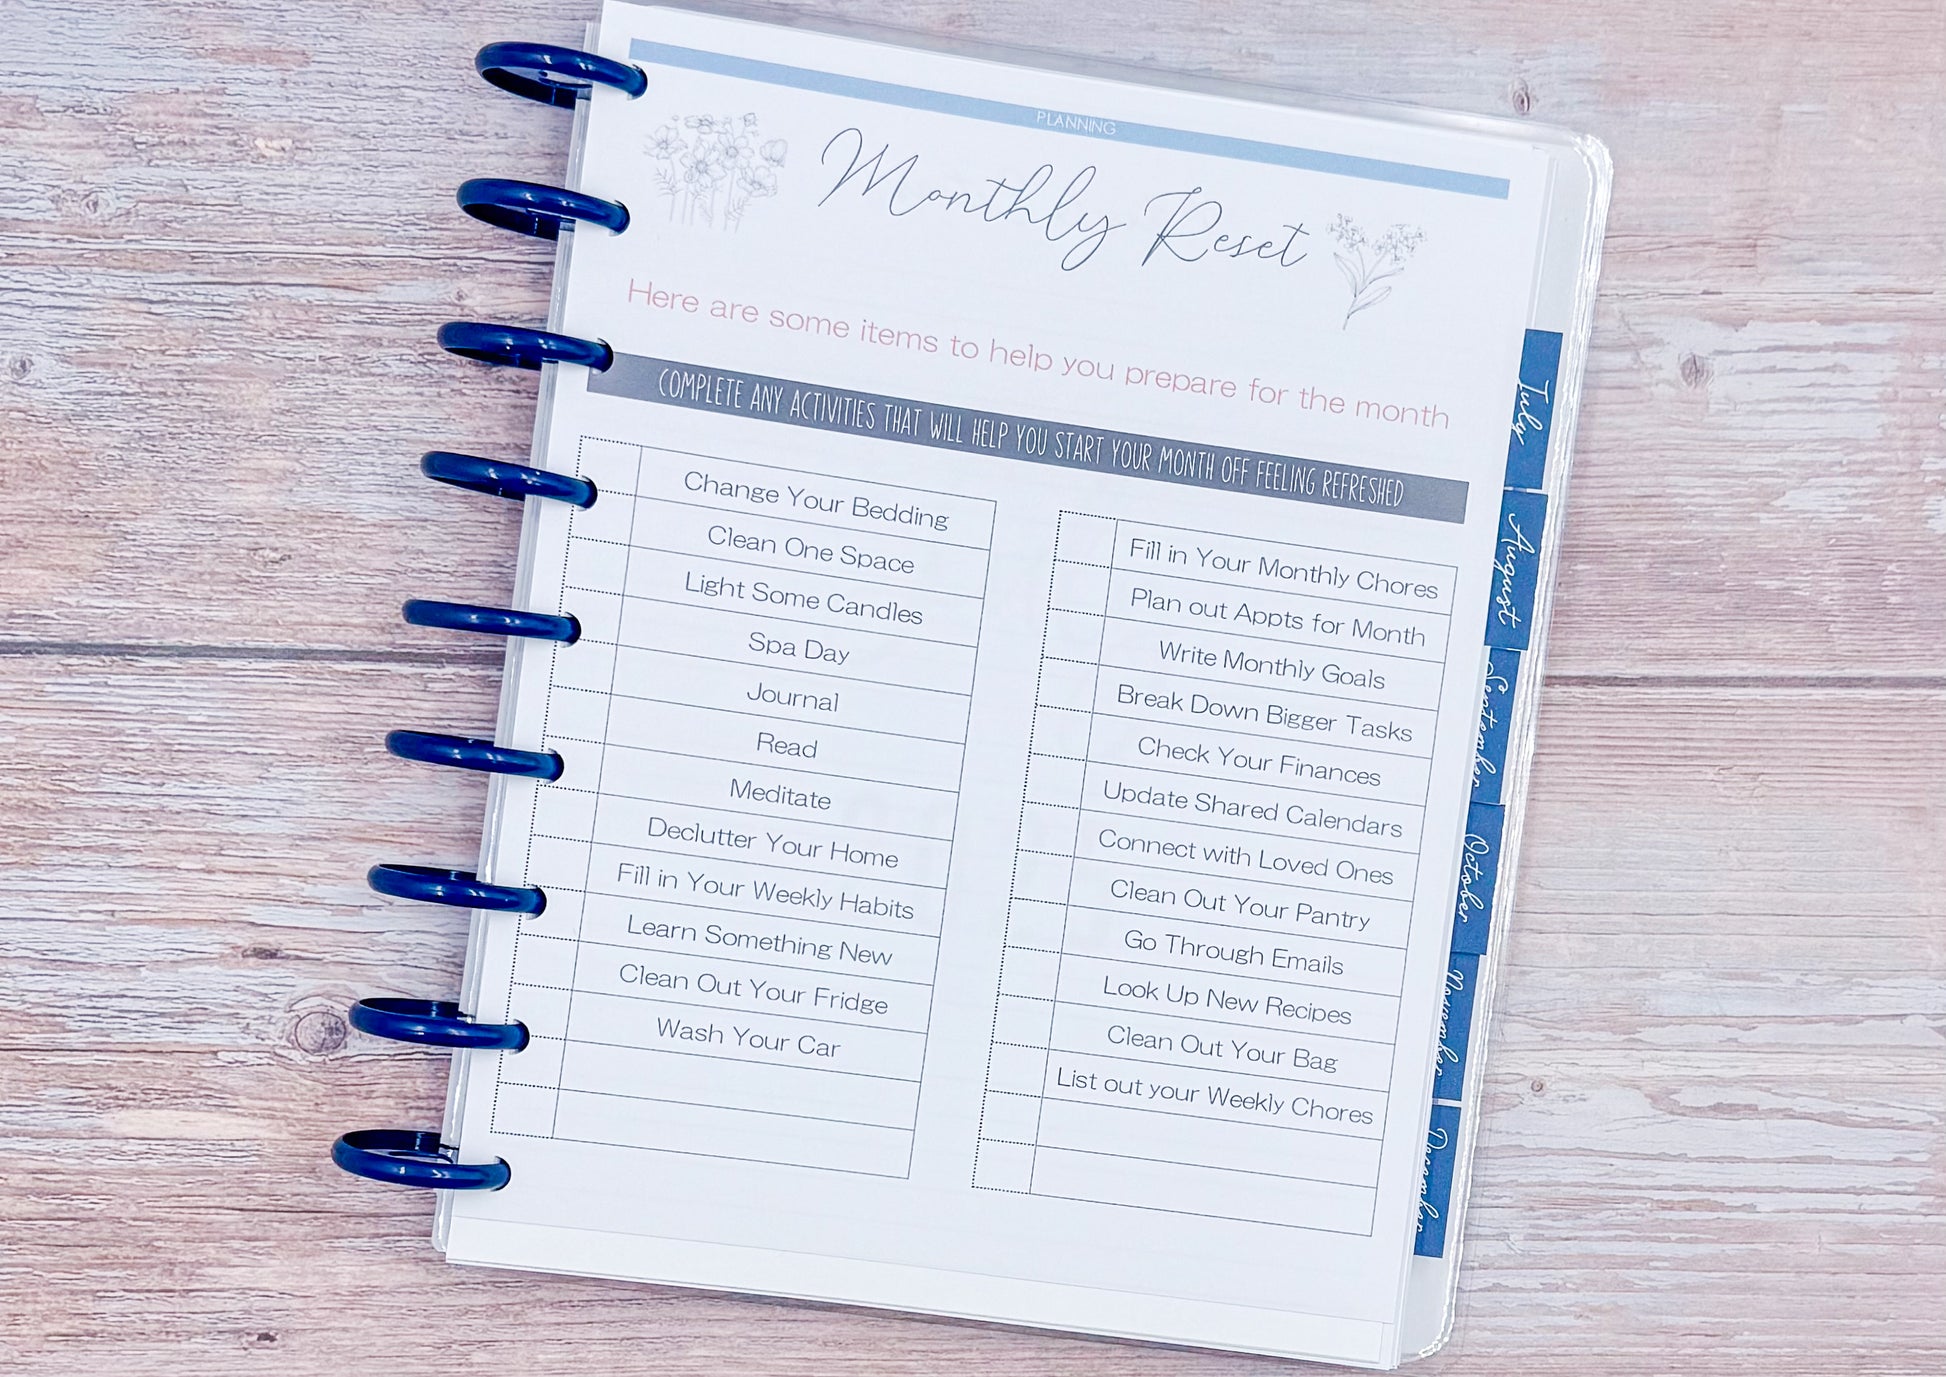 PLANNING
Monthly Reset
Here are some items to help you prepare for the month
COMPLETE ANY ACTIVITIES THAT WILL HELP YOU START YOUR MONTH OFF FEELING REFRESHED
Change Your Bedding
Clean One Space
Light Some Candles
Spa Day
Journal
Read
Meditate
Declutter Your Home
Fill in Your Weekly Habits
Learn Something New
Clean Out Your Fridge
Wash Your Car
Fill in Your Monthly Chores
Plan out Appts for Month
Write Monthly Goals
Break Down Bigger Tasks
Check Your Finances
Update Shared Calendars
Connect with Loved Ones
Clean Out Your Pantry
Go Through Emails
Look Up New Recipes
Clean Out Your Bag
List out your Weekly Chores
July
August
September
October
November
December